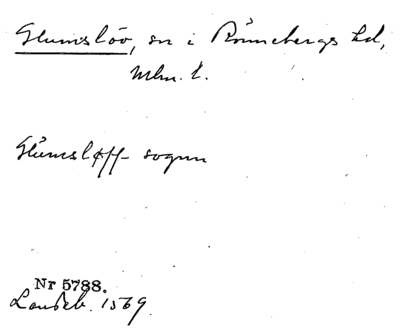 Glumslöv, sn i Rönnebergs hd,
Mlm. l.
Glumsløff sognn
Nr 5788.
Landeb. 1569.